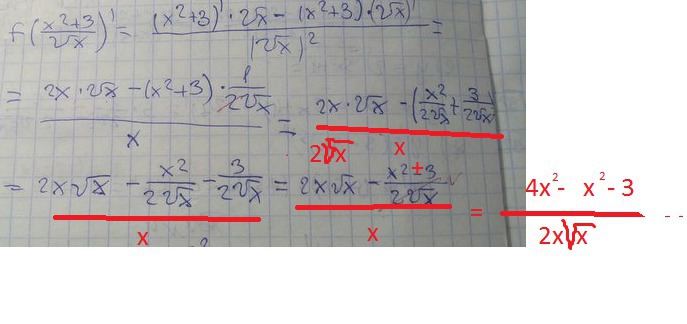 f(\frac{x²+3}{√x})' = \frac{(x²+3)' · √x - (x²+3) · (√x)'}{(√x)²} =
= \frac{2x · √x - (x²+3) · \frac{1}{2√x}}{x} = \frac{2x · √x - (\frac{x²}{2√x} + \frac{3}{2√x}}{x} 2√x
= \frac{2x√x - \frac{x²}{2√x} - \frac{3}{2√x}}{x} = \frac{2x√x - \frac{x² ± 3}{2√x}}{x} = \frac{4x² - x² - 3}{2x√x} --